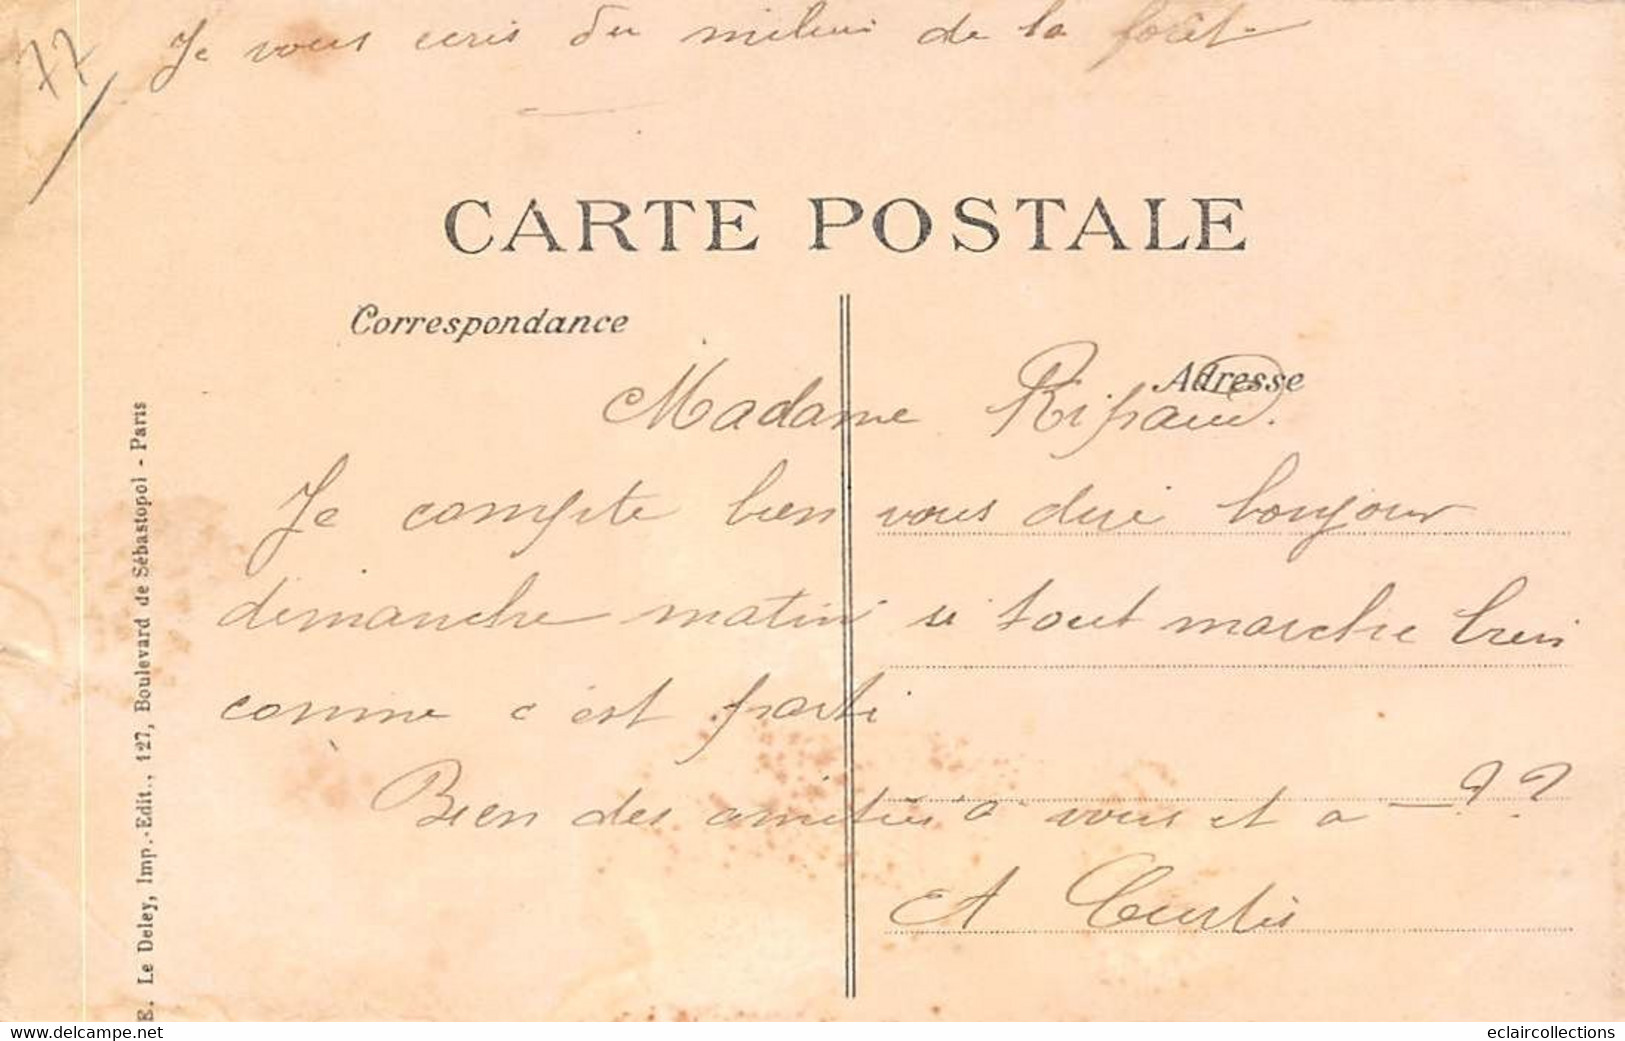 77
Je vous ecris du milieu de la forêt
CARTE POSTALE
Correspondance
Adresse
Madame Ripaud.
Je compte bien vous dire bonjour
dimanche matin si tout marche bien
comme c'est parti
Bien des amitiés à vous et a — ??
A Curtis
E. Le Deley, Imp.-Edit., 127, Boulevard de Sébastopol - Paris
www.delcampe.net
eclaircollections